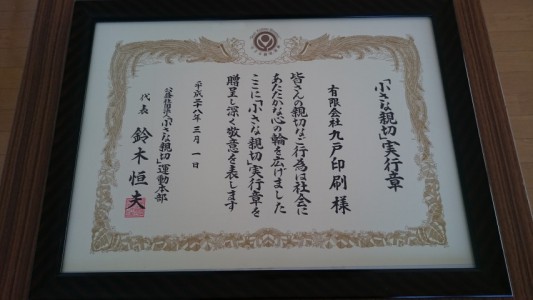 「小さな親切」実行章
有限会社九戸印刷様
皆さんの親切なご行為は社会に
あたたかな心の輪を広げました
ここに「小さな親切」実行章を
贈呈し深く敬意を表します
平成二十八年三月一日
公益社団法人「小さな親切」運動本部
代表 鈴木恒夫